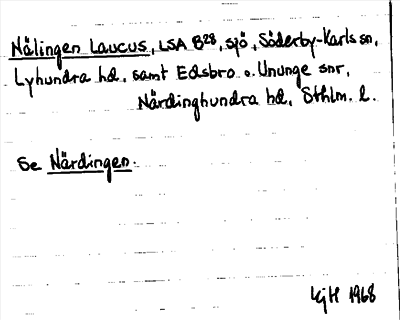 Nälingen Laucus, LSA B28, sjö, Söderby-Karls sn,
Lyhundra hd, samt Edsbro o. Ununge snr,
Närdinghundra hd, Sthlm. l.
Se Närdingen.
1968